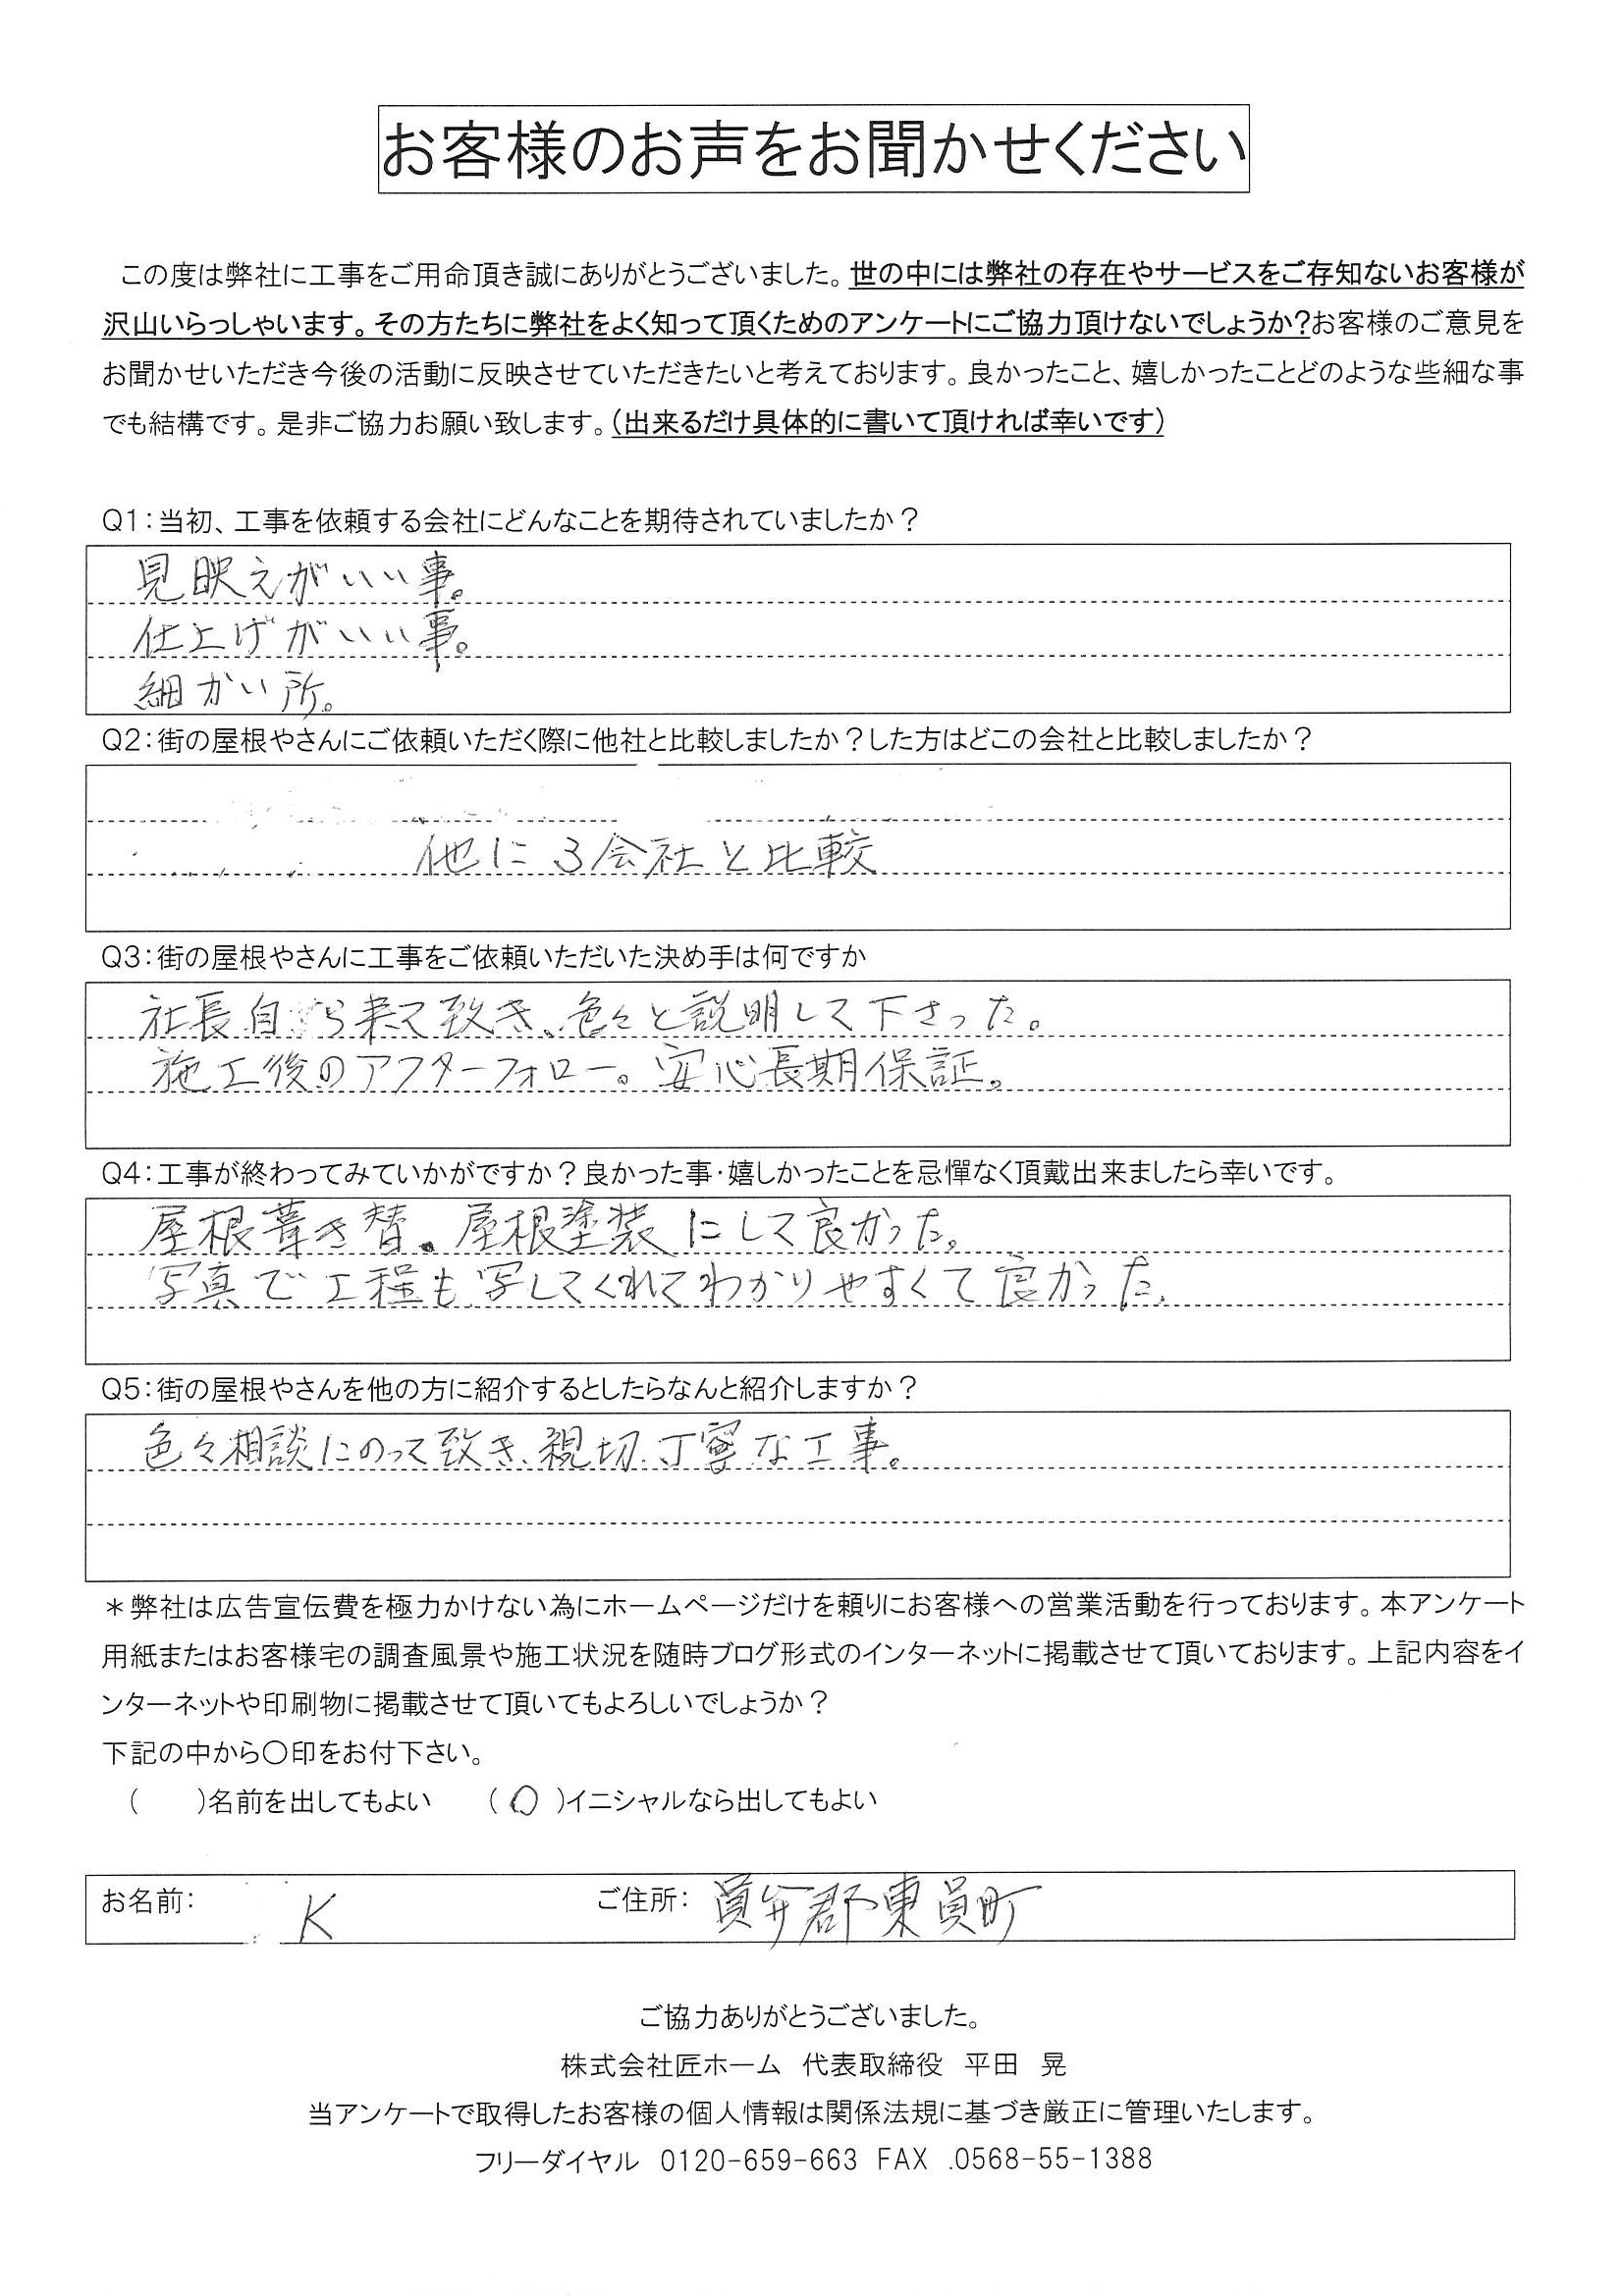 お客様のお声をお聞かせください
この度は弊社に工事をご用命頂き誠にありがとうございました。世の中には弊社の存在やサービスをご存知ないお客様が
沢山いらっしゃいます。その方たちに弊社をよく知って頂くためのアンケートにご協力頂けないでしょうか?お客様のご意見を
お聞かせいただき今後の活動に反映させていただきたいと考えております。良かったこと、嬉しかったことどのような些細な事
でも結構です。是非ご協力お願い致します。(出来るだけ具体的に書いて頂ければ幸いです)
Q1:当初、工事を依頼する会社にどんなことを期待されていましたか?
見映えがいい事。
仕上げがいい事。
細かい所。
Q2:街の屋根やさんにご依頼いただく際に他社と比較しましたか?した方はどこの会社と比較しましたか?
他に3会社と比較
Q3:街の屋根やさんに工事をご依頼いただいた決め手は何ですか
社長自ら来て致き、色々と説明して下さった。
施工後のアフターフォロー。安心長期保証。
Q4:工事が終わってみていかがですか?良かった事・嬉しかったことを忌憚なく頂戴出来ましたら幸いです。
屋根葺き替。屋根塗装にして良かった。
写真で工程も写してくれてわかりやすくて良かった。
Q5:街の屋根やさんを他の方に紹介するとしたらなんと紹介しますか?
色々相談にのって致き、親切、丁寧な工事。
*弊社は広告宣伝費を極力かけない為にホームページだけを頼りにお客様への営業活動を行っております。本アンケート
用紙またはお客様宅の調査風景や施工状況を随時ブログ形式のインターネットに掲載させて頂いております。上記内容をイ
ンターネットや印刷物に掲載させて頂いてもよろしいでしょうか?
下記の中から〇印をお付下さい。
(　　)名前を出してもよい　　(〇)イニシャルなら出してもよい
お名前:　K　ご住所:　員弁郡東員町
ご協力ありがとうございました。
株式会社匠ホーム　代表取締役　平田　晃
当アンケートで取得したお客様の個人情報は関係法規に基づき厳正に管理いたします。
フリーダイヤル　0120-659-663 FAX .0568-55-1388